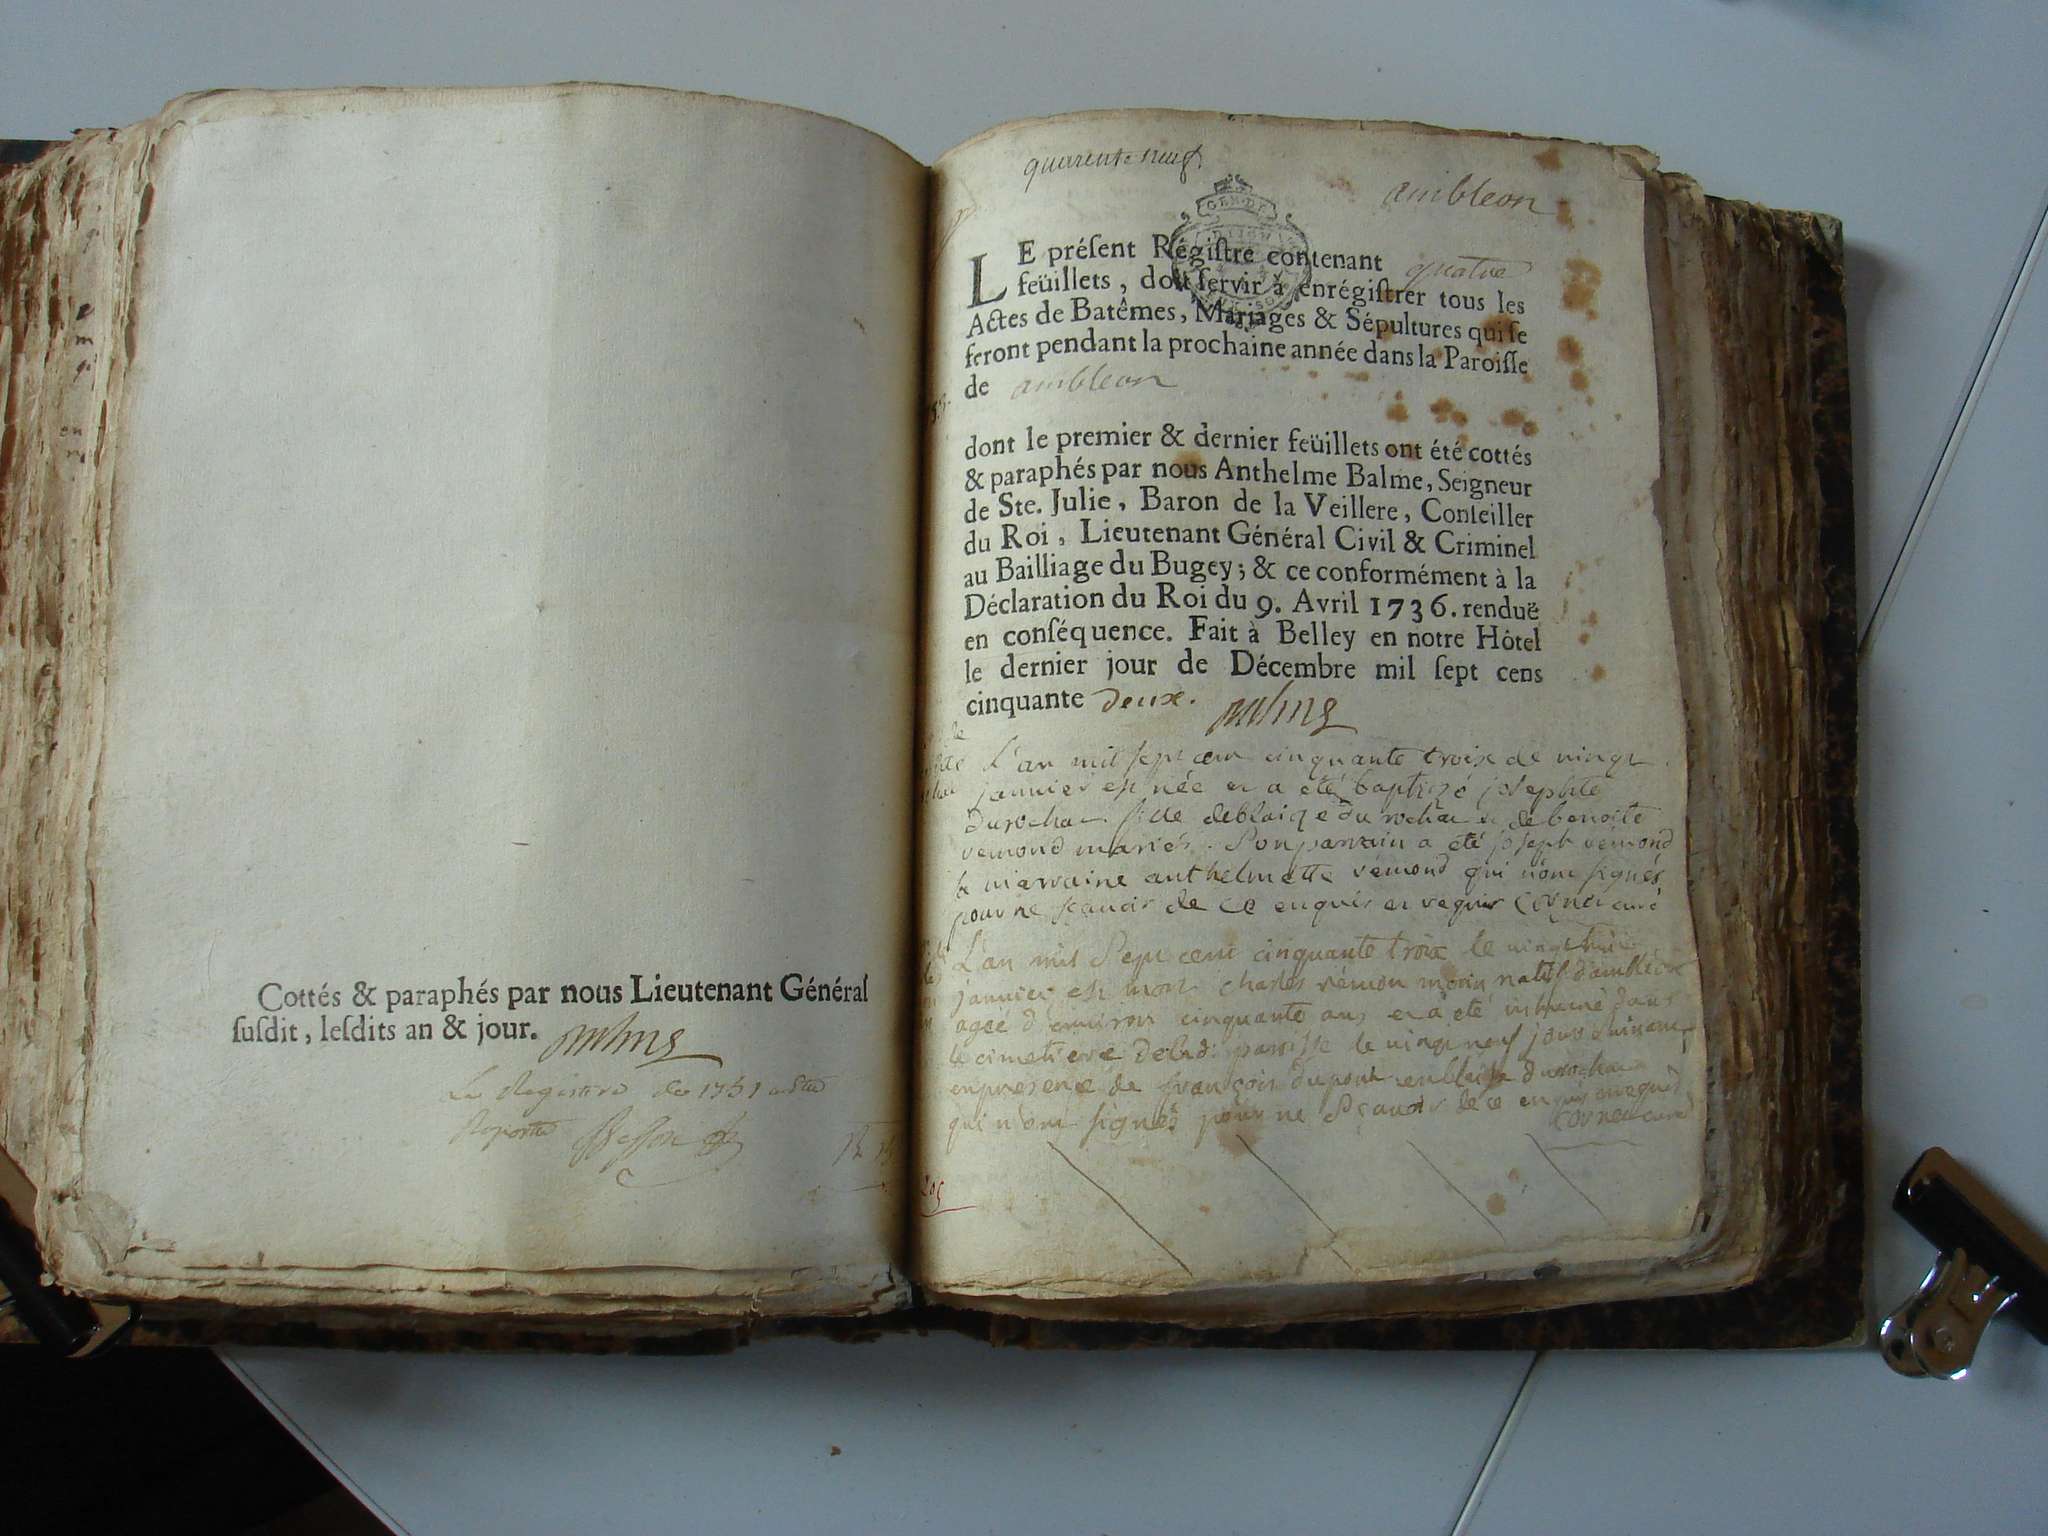 Cottés & paraphés par nous Lieutenant Général
ſuſdit, leſdits an & jour.
Le Registre de 1751 a été
quarente neuf
ambleon
LE préſent Régiſtre contenant quatre
feüillets, doit ſervir à enrégiſtrer tous les
Actes de Batêmes, Mariages & Sépultures qui ſe
feront pendant la prochaine année dans la Paroiſſe
de ambleon
dont le premier & dernier feüillets ont été cottés
& paraphés par nous Anthelme Balme, Seigneur
de Ste. Julie, Baron de la Veillere, Conſeiller
du Roi, Lieutenant Général Civil & Criminel
au Bailliage du Bugey; & ce conformément à la
Déclaration du Roi du 9. Avril 1736. renduë
en conſéquence. Fait à Belley en notre Hôtel
le dernier jour de Décembre mil ſept cens
cinquante deux.
L'an mil sept cen cinquante troix de vingt
janvier est née et a été baptizé josephte
durochat fille de blaize du rochat & de benoite
remond mariés. Son parrain a été joseph rémond
la marraine anthelmette rémond qui n'ont signés
pour ne sçavoir de ce enquis et requis Cornet curé
L'an mil Sept cent cinquante troix le vingt huit
janvier est mort charles rémon morin natif d'ambleon
ageé d'environ cinquante ans et a été inhumé dans
le cimetiere de lad. parroisse le vingt neuf jour suivant
en presence de françois dupont et blaise durochat
qui n'ont signés pour ne Sçavoir de ce enquis et requis
Cornet curé
205